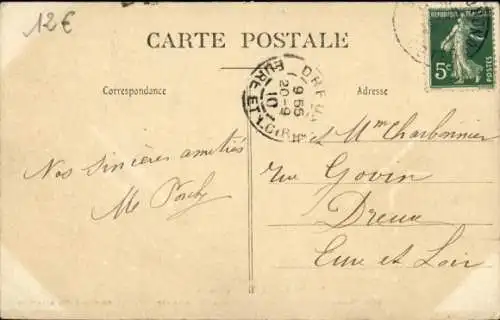 12€
CARTE POSTALE
REPUBLIQUE FRANÇAISE
5c
POSTES
Correspondance
Adresse
DREUX
9 55
20-9
10
EURE ET LOIR
et Mme Charbonnier
Nos sincères amitiés
rue Govin
Dreux
Eure et Loir